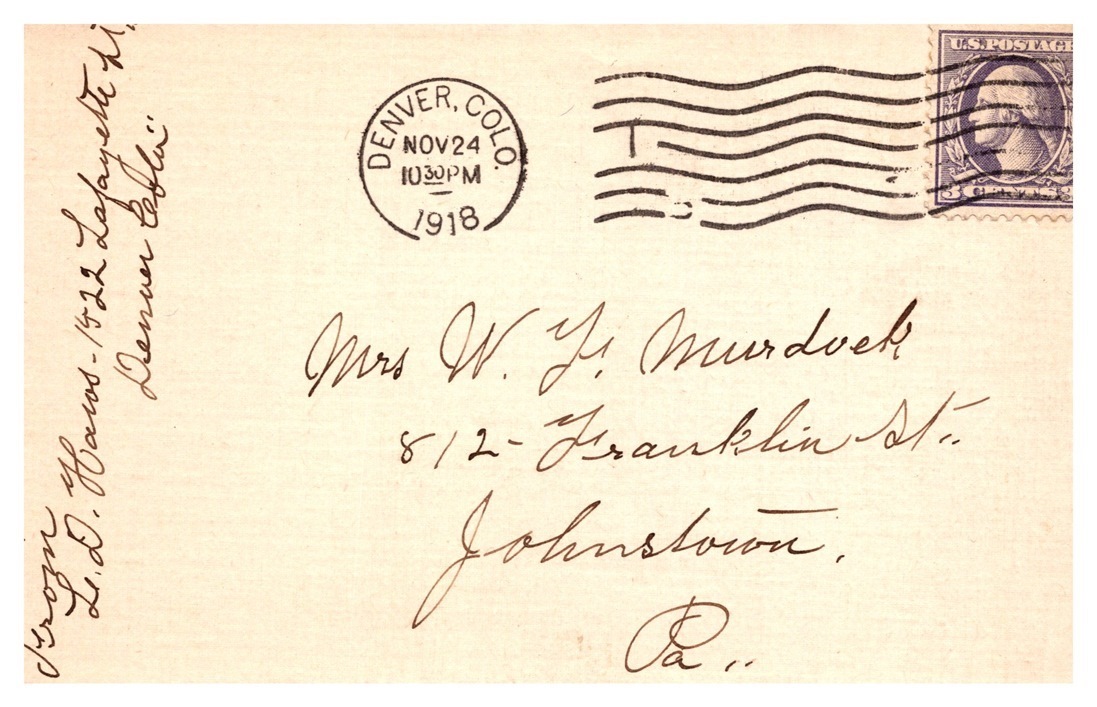 From
L. D. Haws - 1522 Lafayette St.
Denver Colo
DENVER, COLO.
NOV 24
10 30 PM
1918
U.S. POSTAGE
3 CENTS 3
Mrs W. F. Murdock
812 - Franklin St.
Johnstown.
Pa